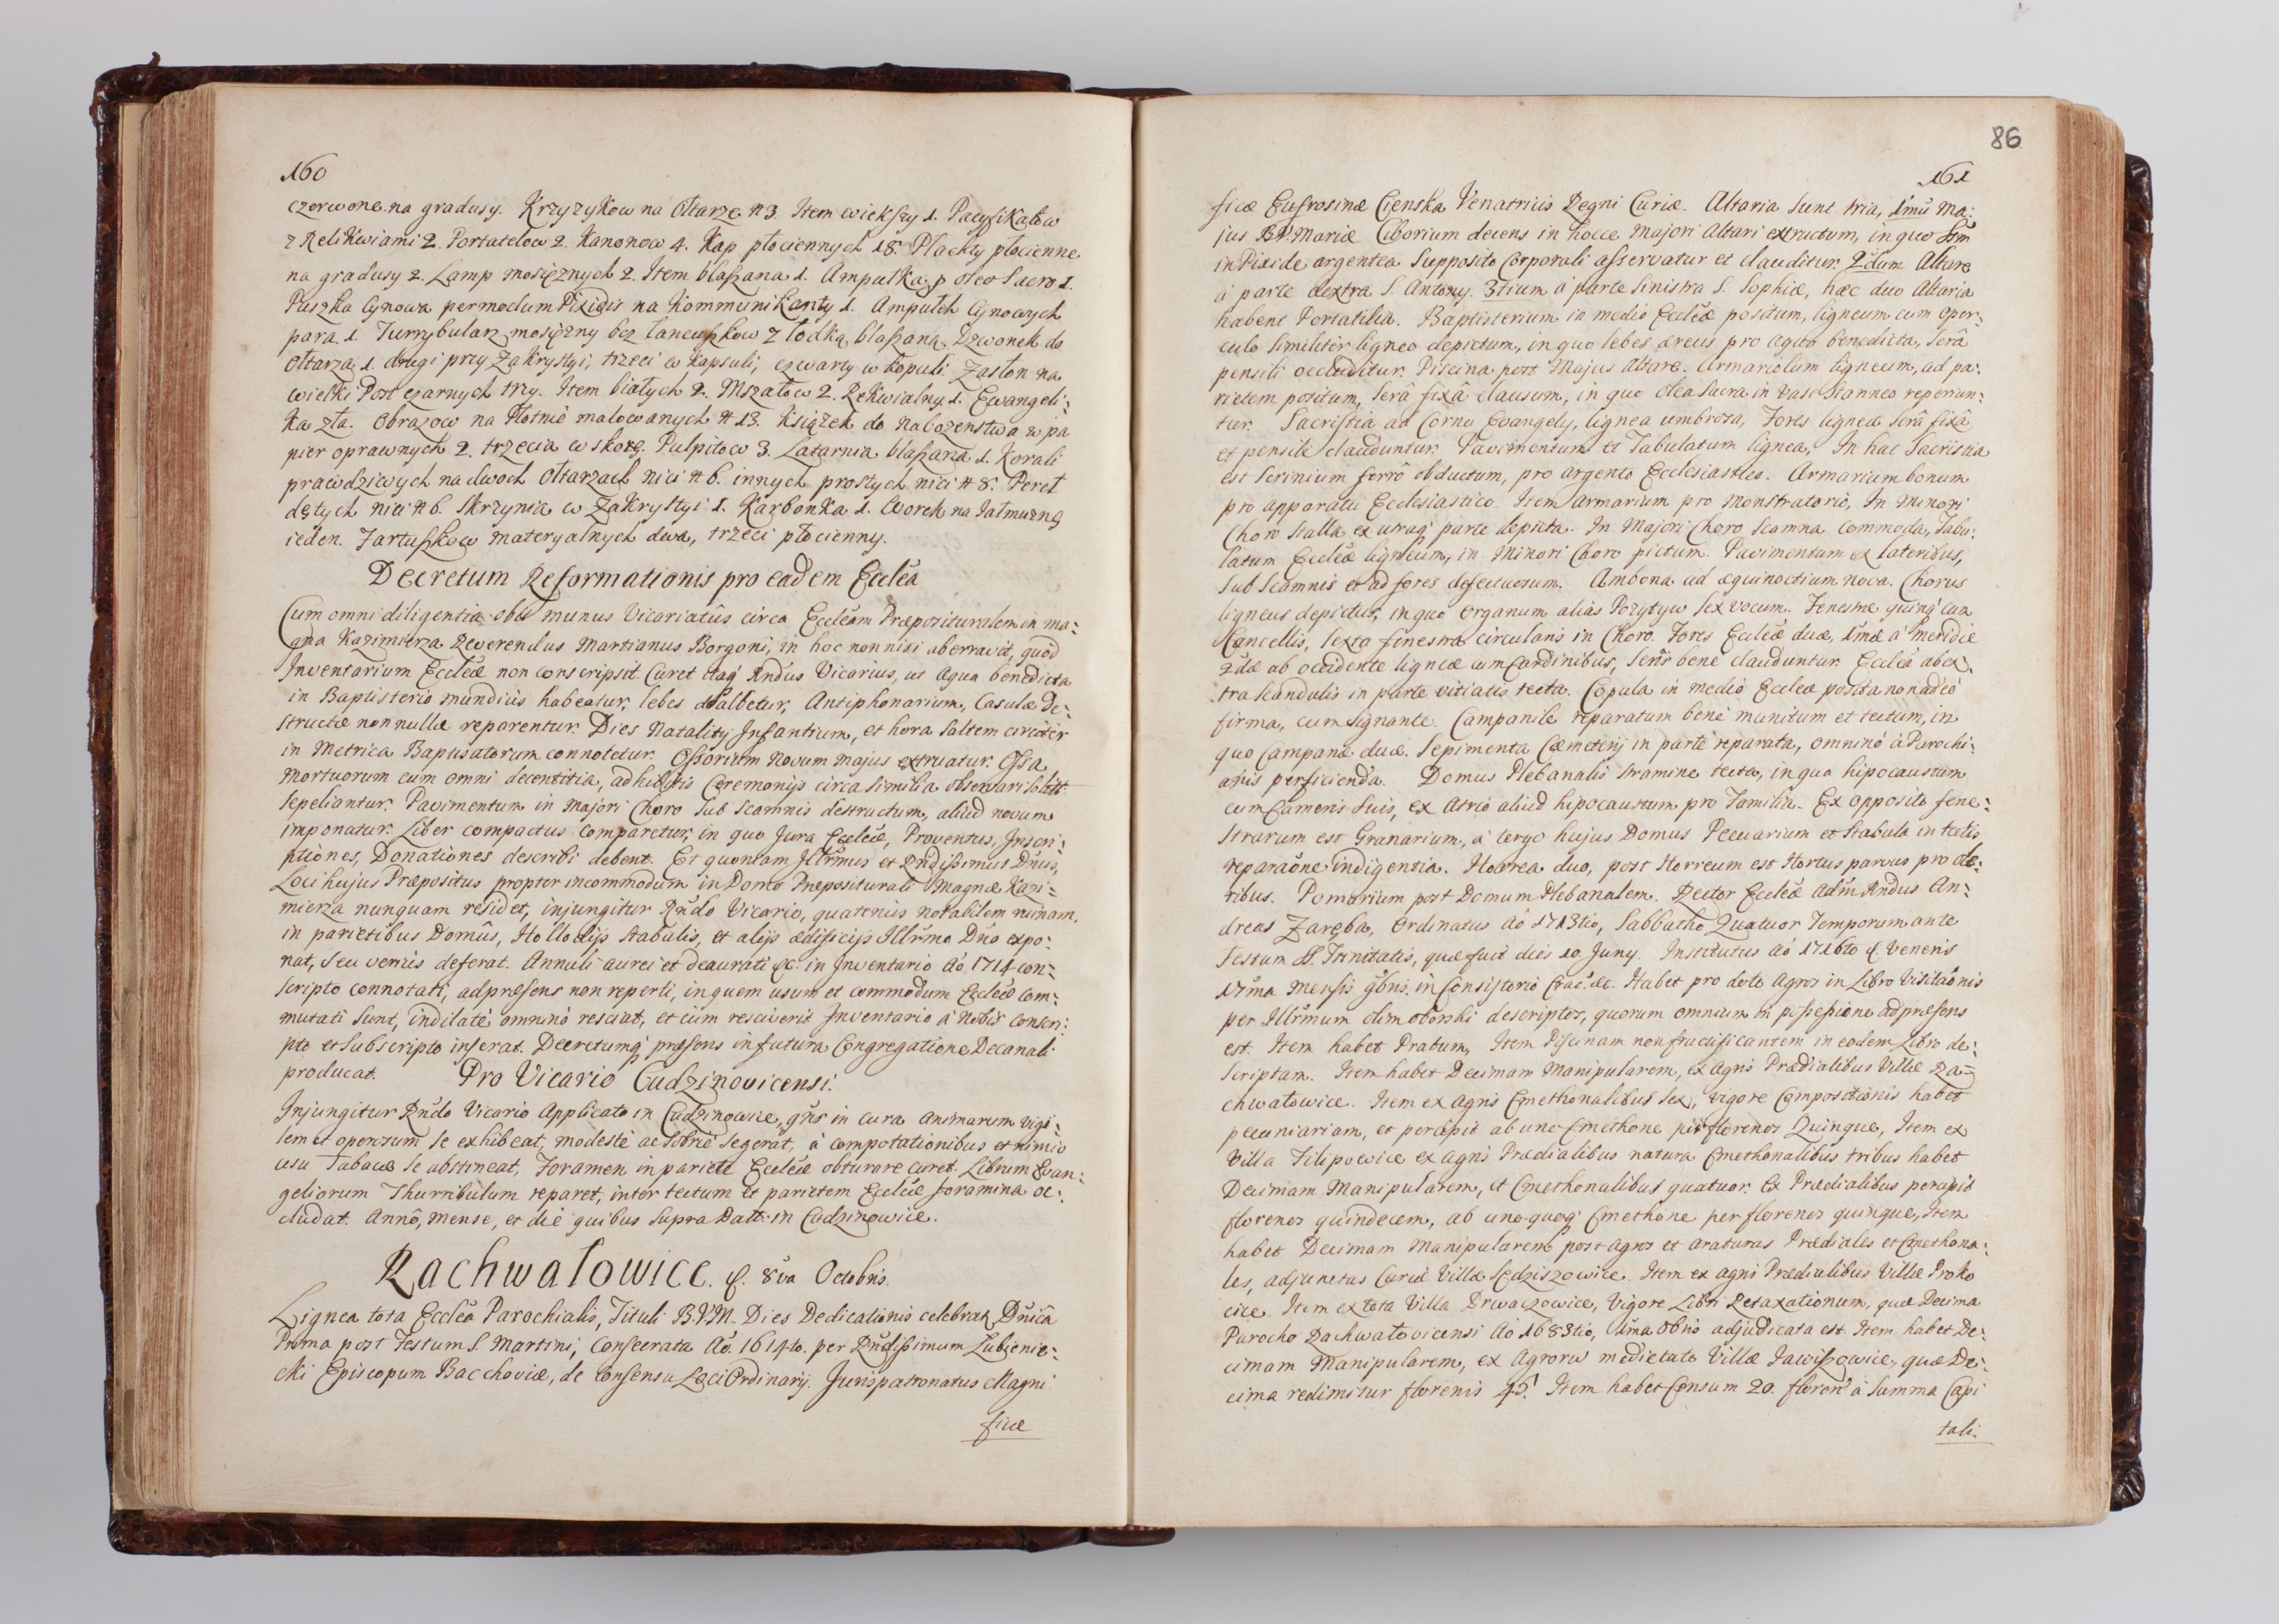 160
czerwone na gradusy. Krzyzykow na Ołtarze # 3. Item wiekszy 1. Pacyfikałow
z Relikwiami 2. Portatelow 2. Kanonow 4. Kap płociennych 18. Płachty płocienne
na gradusy 2. Lamp mosięznych 2. Item blaszana 1. Ampułka p oleo Sacro 1.
Puszka Cynowa permodum Pixidis na Kommunikanty 1. Ampułek Cynowych
para 1. Turrybularz mosięzny bez łancuszkow z łodką blaszaną. Dzwonek do
Ołtarza 1. drugi przy Zakrystyi, trzeci w Kapsuli, czwarty w kopuli. Zasłon na
wielki Post czarnych trzy. Item białych 2. Mszałow 2. Rekwialny 1. Ewangeli:
ka zła. Obrazow na Płotnie malowanych # 13. Książek do Nabozenstwa w pa
pier oprawnych 2. trzecia w skorę. Pulpitow 3. Latarnia blaszana 1. Korali
prawdziwych na dwoch Ołtarzach nici # 6. innych prostych nici # 8. Pereł
dętych nici # 6. Skrzynia w Zakrystyi 1. Karbonka 1. Worek na Jałmuznę
ieden. Fartuszkow materyalnych dwa, trzeci płocienny.
Decretum Reformationis pro eadem Eccleá
Cum omni diligentia obit munus Vicariatûs circa Eccleám Præposituralem in ma:
gna Kazimierza Reverendus Martianus Borgoni, in hoc non nisi aberravit, quod
Inventarium Eccleæ non conscripsit. Curet itaq́ Rndus Vicarius, ut Aqua benedicta
in Baptisterio mundiùs habeatur, lebes dealbetur, Antiphonarium, Casulæ de:
structæ non nullæ reparentur. Dies Natality Infantium, et hora saltem circiter
in Metrica Baptisatorum connotetur. Ossorium Novum majus extruatur. Ossa
Mortuorum cum omni decentitia, adhibitis Ceremonijs circa similia observari solitt:
sepeliantur. Pavimentum in Majori Choro sub Scamnis destructum, aliud novum
imponatur. Liber compactus comparetur, in quo Jura Eccleæ, Proventus, Inscri:
ptiones, Donationes describi debent. Et quoniam Illrmus et Rndissimus Dnus,
Loci hujus Præpositus propter incommodum in Domo Præpositurali Magnæ Kazi:
mierza nunquam residet, injungitur Rndo Vicario, quatenùs notabilem ruinam,
in parietibus Domûs, Hollodijs Stabulis, et alijs ædificijs Illrmo Dno expo:
nat, seu verius deferat. Annuli aurei et deaurati &c. in Inventario Aó 1714 con:
scripto connotati, ad præsens non reperti, in quem usum et commodum Eccleæ com:
mutati sunt, indilatè omninò resciat, et cum resciverit Inventario à Nobis conscri:
pto et subscripto inserat. Decretumq́ præsens in futura Congregatione Decanali
producat.
Pro Vicario Cudzinovicensi.
Injungitur Rndo Vicario Applicato in Cudzinowice, qûs in cura animarum vigi:
lem et operosum se exhibeat, modestè ac sobriè se gerat, à compotationibus et nimio
usu Tabacæ se abstineat, Foramen in pariete Eccleæ obturare curet. Librum Evan:
geliorum Thurribulum reparet, inter tectum et parietem Eccleæ foramina oc:
cludat. Annô, Mense, et die quibus supra Datt: in Cudzinowice.
Rachwałowice. d. 8va Octobris.
Lignea tota Eccleá Parochialis, Tituli B.V.M. Dies Dedicationis celebratr Dnicâ
Prima post Festum S. Martini, Consecrata Aó. 1614to. per Rndissimum Lubienie:
cki Episcopum Bacchoviæ, de Consensu Loci Ordinarij. Jurispatronatus Magni
ficæ
86
161
ficæ Eufrosinæ Cienska Venatricis Regni Curiæ. Altaria sunt tria, 1mũ Ma:
jus B.V. Mariæ Ciborium decens in hocce Majori Altari extructum, in quo Ssm̃
in Pixide argentea Supposito Corporali asservatur et clauditur. 2dum Altare
à parte dextra S. Antony. 3tium à parte sinistra S. Sophiæ, hæc duo Altaria
habent Portatilia. Baptisterium in medio Eccleæ positum, ligneum cum oper:
culo similiter ligneo depictum, in quo lebes æreus pro Aqua benedicta, Serâ
pensili occluditur. Piscina post Majus Altare. Armariolum ligneum, ad pa:
rietem positum, Serâ fixâ clausum, in quo Olea Sacra in Vase Stanneo reperiun:
tur. Sacristia ad Cornu Evangely, lignea umbrosa, Fores ligneæ Serâ fixâ
et pensili clauduntur. Pavimentum et Tabulatum lignea, In hac Sacristia
est Scrinium ferrô obductum, pro argento Ecclesiastico. Armarium bonum
pro apparatu Ecclesiastico. Item Armarium pro Monstratorio, In Minori
Choro Stalla ex utraq́ parte depicta. In Majori Choro Scamna commoda, Tabu:
latum Eccleæ ligneum, in Minori Choro pictum. Pavimentum ex lateribus,
Sub Scamnis et ad fores defectuosum. Ambona ad æquinoctium nova. Chorus
ligneus depictus, in quo Organum aliàs Pozytyw sex vocum. Fenestræ quinq́ cum
Cancellis, Sexta fenestra circularis in Choro. Fores Eccleæ duæ, 1mæ à Meridie
2dæ ab occidente ligneæ cum Cardinibus, Seris bene clauduntur. Eccleá abex
tra Scandulis in parte vitiatis tecta. Copula in medio Eccleæ posita non adeò
firma, cum Signante. Campanile reparatum benè munitum et tectum, in
quo Campanæ duæ. Sepimenta Cæmeterij in parte reparata, omninò à Parochi:
anis perficienda. Domus Plebanalis Stramine tecta, in qua hipocaustum
cum Cameris suis, ex Atrio aliud hipocaustum pro Familia. Ex opposito fene:
strarum est Granarium, à tergo hujus Domus Pecuarium et Stabula in tectis
reparaõne indigentia. Horrea duo, post Horreum est Hortus parvus pro ole:
ribus. Pomarium post Domum Plebanalem. Rector Eccleæ Adm̃ Rndus An:
dreas Zaręba, Ordinatus Aó 1713tio, Sabbatho Quatuor Temporum ante
Festum SS. Trinitatis, quæ fuit dies 10 Juny. Institutus Aó 1716to d. Veneris
17ma Mensis 9bris. in Consistorio Crac. &c. Habet pro dote Agros in Libro Visitaõnis
per Illrmum olim Oborski descriptos, quorum omnium in possessione ad præsens
est. Item habet Pratum, Item Piscinam non fructificantem in eodem Libro de:
scriptam. Item habet Decimam Manipularem, ex Agris Prædialibus Villæ Ra:
chwałowice. Item ex Agris Cmethonalibus sex, vigore Compositionis habet
pecuniariam, et percipit ab uno Cmethone per florenos Quinque, Item ex
Villa Filipowice ex Agris Prædialibus natura Cmethonalibus tribus habet
Decimam Manipularem, et Cmethonalibus quatuor. Ex Prædialibus percipit
florenos quindecem, ab uno quoq́ Cmethone per florenos quinque, Item
habet Decimam Manipularem post Agros et Araturas Prædiales et Cmethona:
les, adjunctas Curiæ Villæ Sędziszowice. Item ex Agris Prædialibus Villæ Proko
cice. Item ex tota Villa Drwaczowice, Vigore Libri Retaxationum, quæ Decima
Parocho Rachwałovicensi Aó 1683tio, 1ma 8bris adjudicata est. Item habet De:
cimam Manipularem, ex Agrorũ medietate Villæ Jawiszowice, quæ De:
cima redimitur florenis 45. Item habet Censum 20. floren̄ à Summa Capi
tali